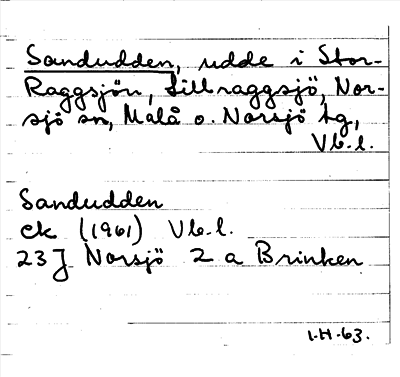 Sandudden, udde i Stor-
Raggsjön, Lillraggsjö, Nor-
sjö sn, Malå o. Norsjö tg,
Vb. l.
Sandudden
ek (1961) Vb. l.
23J Norsjö 2 a Brinken
I.H.63.